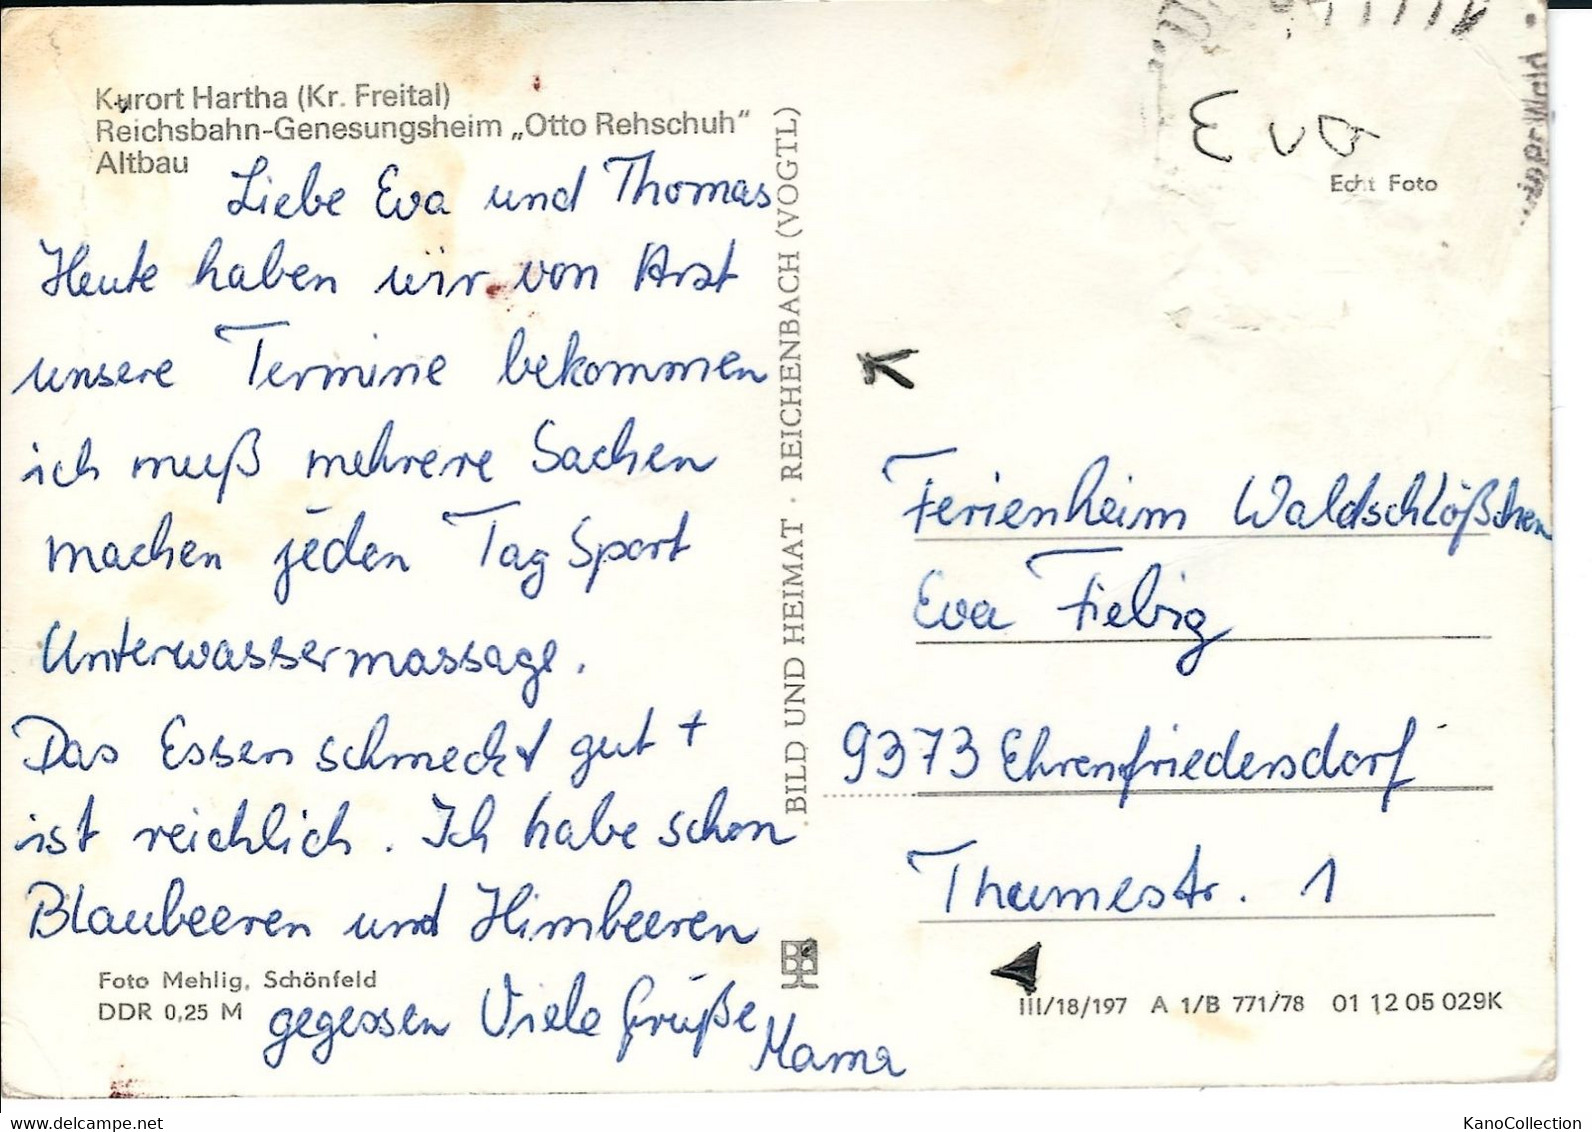 Kurort Hartha (Kr. Freital)
Reichsbahn-Genesungsheim „Otto Rehschuh"
Altbau
Liebe Eva und Thomas
Heute haben wir von Arzt
unsere Termine bekommen
ich muß mehrere Sachen
machen jeden Tag Sport
Unterwassermassage.
Das Essen schmeckt gut +
ist reichlich. Ich habe schon
Blaubeeren und Himbeeren
gegessen Viele Grüße
Mama
Foto Mehlig, Schönfeld
DDR 0,25 M
BILD UND HEIMAT · REICHENBACH (VOGTL)
Eva
Echt Foto
Ferienheim Waldschlößchen
Eva Fiebig
9373 Ehrenfriedersdorf
Thumestr. 1
III/18/197 A 1/B 771/78 01 12 05 029K
www.delcampe.net
KanoCollection